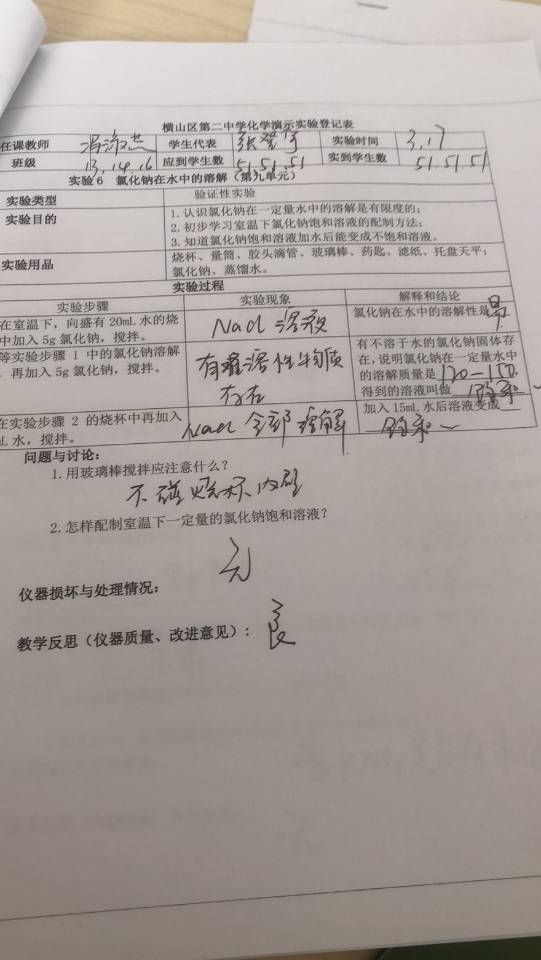 横山区第二中学化学演示实验登记表
任课教师 学生代表 实验时间 3.17
班级 13.14.16 应到学生数 51.51.51 实到学生数 51.51.51
实验6 氯化钠在水中的溶解（第九单元）
实验类型 验证性实验
实验目的 1.认识氯化钠在一定量水中的溶解是有限度的；
2.初步学习室温下氯化钠饱和溶液的配制方法；
3.知道氯化钠饱和溶液加水后能变成不饱和溶液。
实验用品 烧杯、量筒、胶头滴管、玻璃棒、药匙、滤纸、托盘天平；
氯化钠、蒸馏水。
实验过程
实验步骤 实验现象 解释和结论
在室温下，向盛有20mL水的烧
中加入5g氯化钠，搅拌。
NaCl 溶
氯化钠在水中的溶解性是
等实验步骤1中的氯化钠溶解
再加入5g氯化钠，搅拌。
有难溶性物质
存在
有不溶于水的氯化钠固体存
在，说明氯化钠在一定量水中
的溶解质量是
得到的溶液叫做 饱和
在实验步骤2的烧杯中再加入
L水，搅拌。
NaCl 全部溶解
加入15mL水后溶液变成
饱和
问题与讨论：
1.用玻璃棒搅拌应注意什么？
不碰烧杯内壁
2.怎样配制室温下一定量的氯化钠饱和溶液？
仪器损坏与处理情况： 无
教学反思（仪器质量、改进意见）： 良